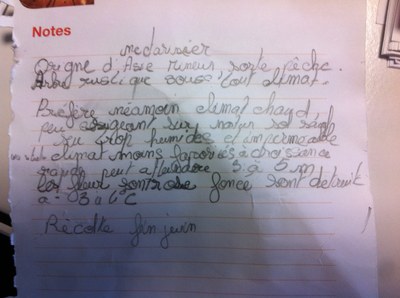 Notes
nectarinier
Origne d'Asie mineur sorte pêche.
Arbre rustique sous tout climat.
Préfère néamoin climat chaud
peu exigeant sur nature sol
trop humides et imperméable
climat moins favorisés croissance
rapide peut atteindre 3 à 5 m
les fleur sont rose foncé sont detruit
a -3 a
Récolte fin juin